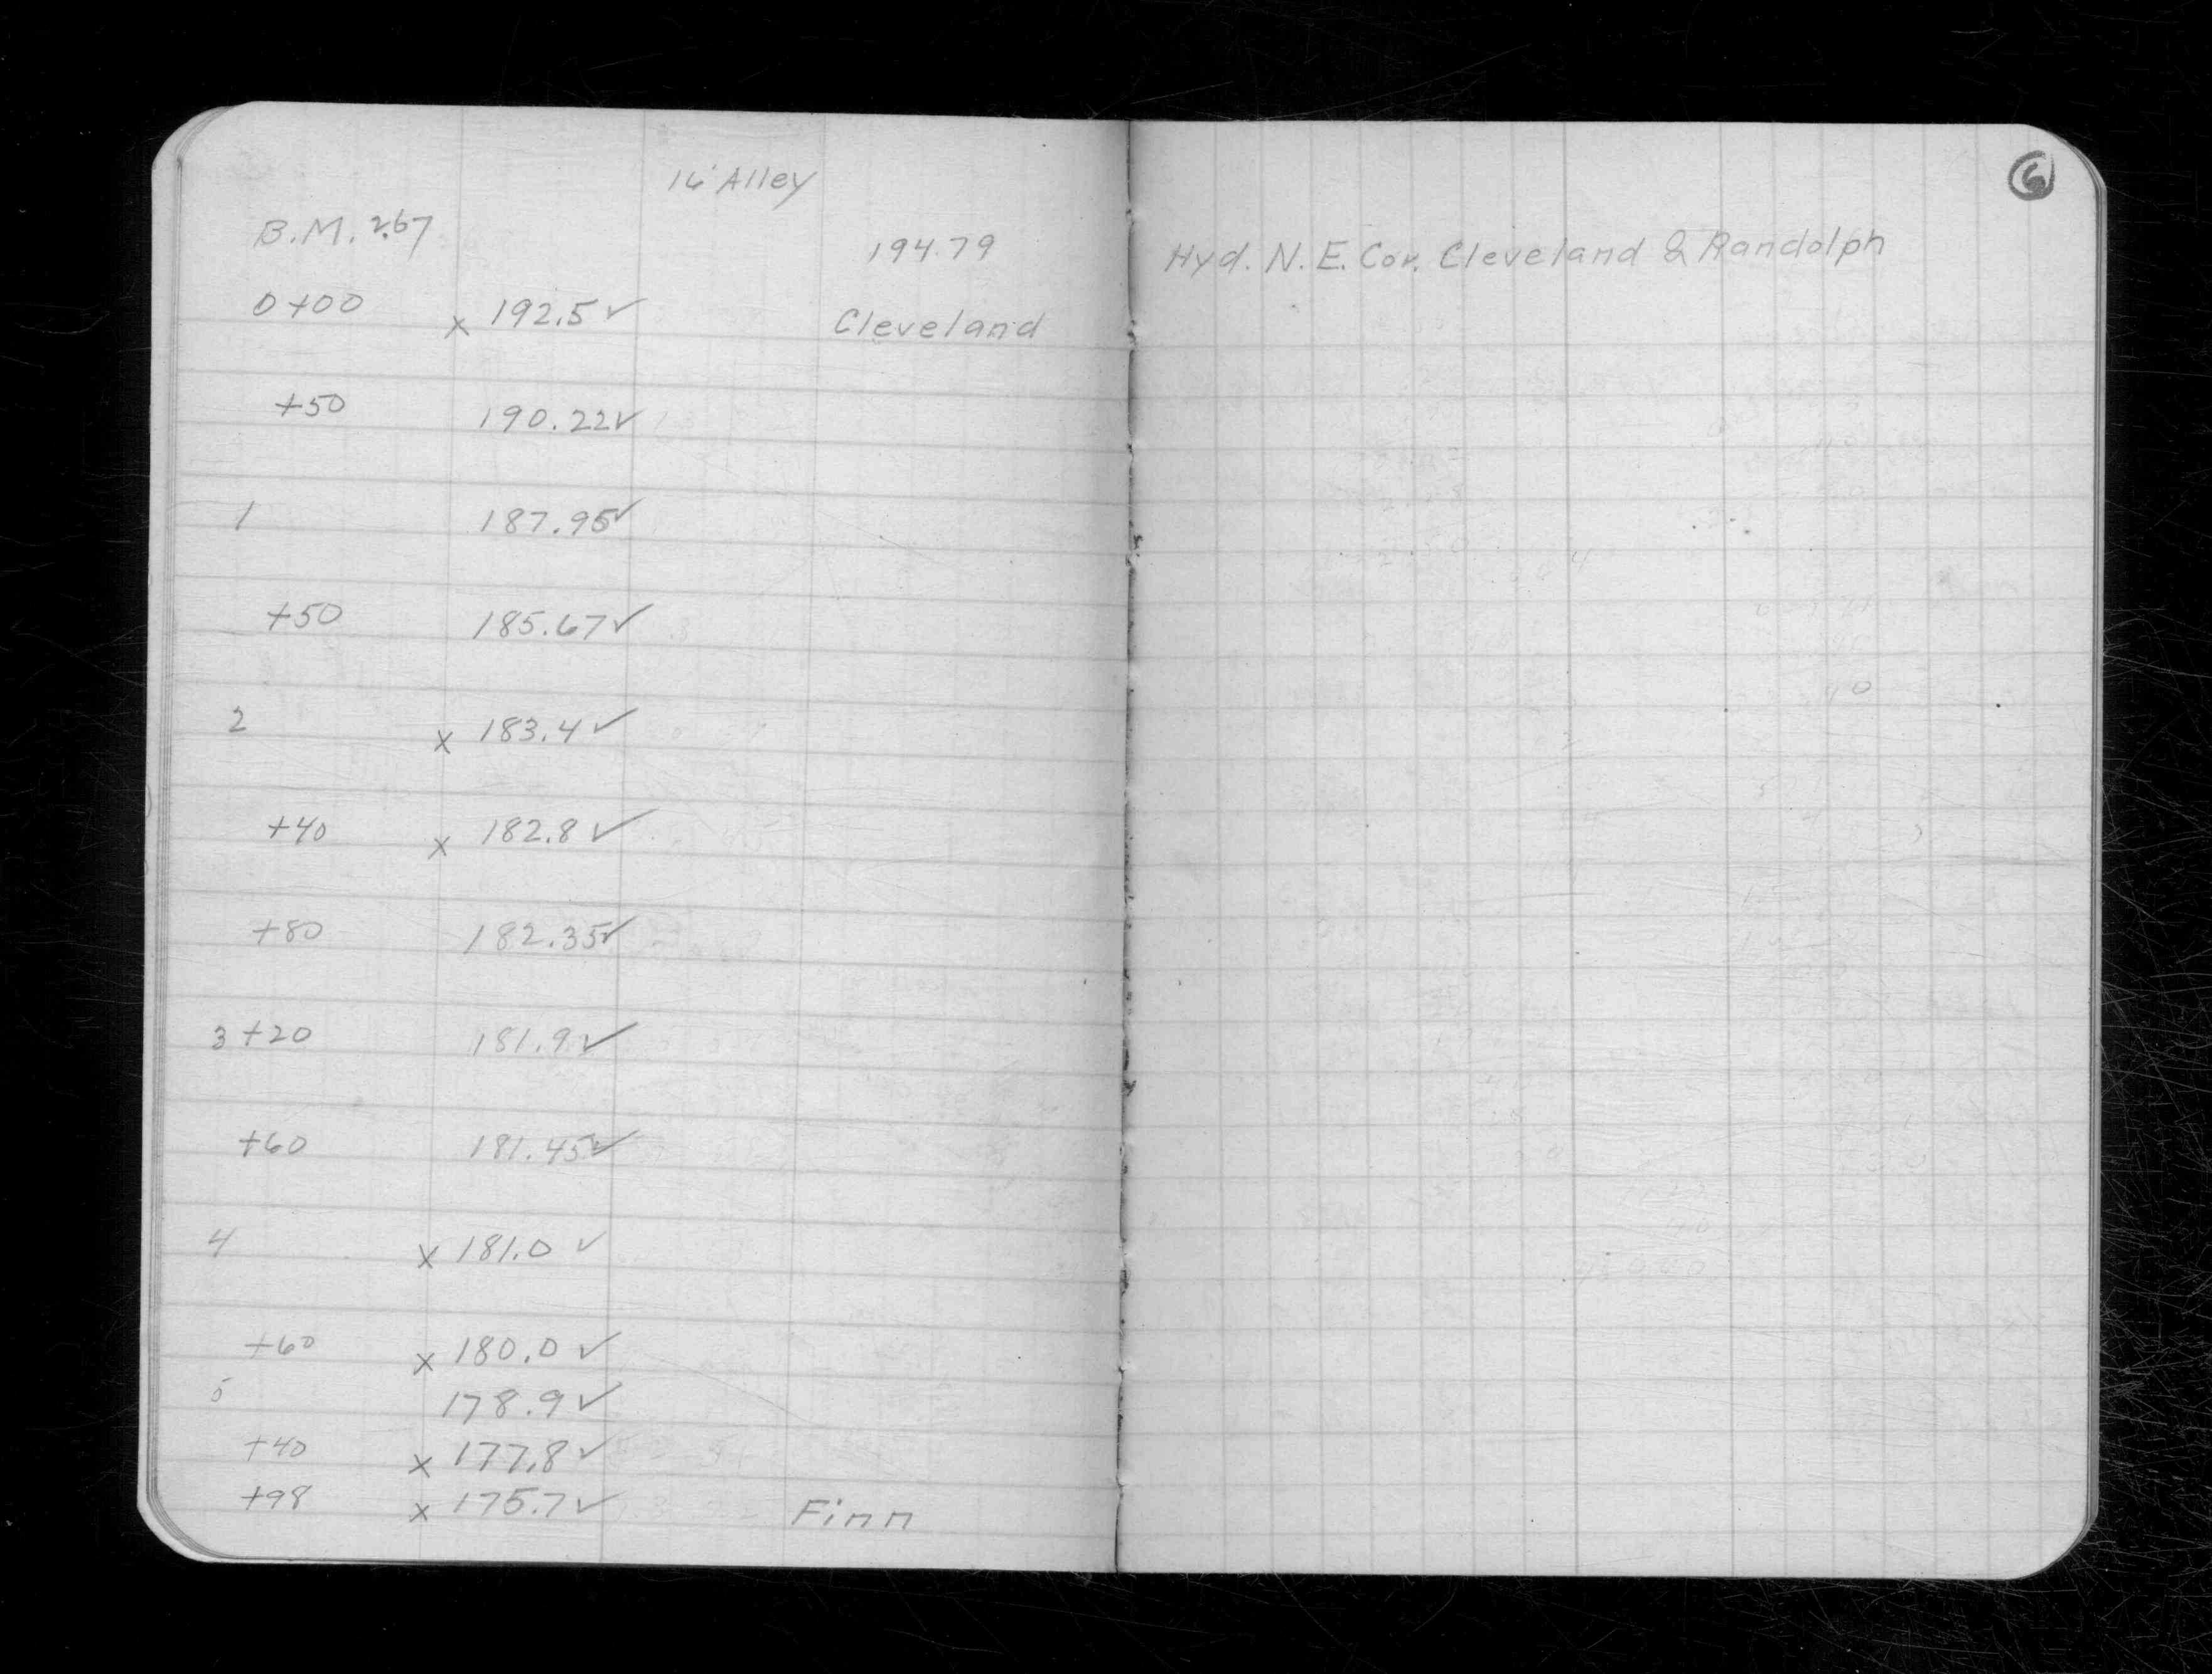 16' Alley
6
B.M. 2.67 194.79 Hyd. N. E. Cor. Cleveland & Randolph
0+00 x 192.5 ✓ Cleveland
+50 190.22 ✓
1 187.95 ✓
+50 185.67 ✓
2 x 183.4 ✓
+40 x 182.8 ✓
+80 182.35 ✓
3+20 181.9 ✓
+60 181.45 ✓
4 x 181.0 ✓
+60 x 180.0 ✓
5 178.9 ✓
+40 x 177.8 ✓
+98 x 175.7 ✓ Finn